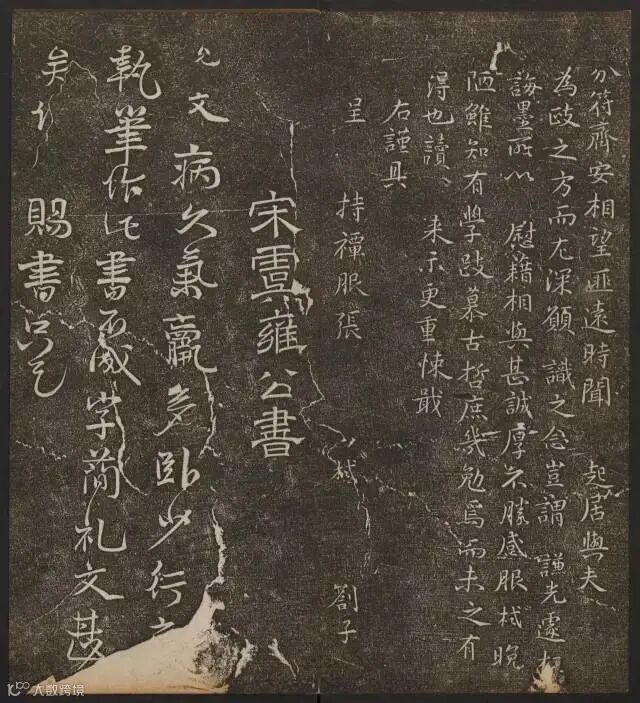 分符齊安相望匪遠時聞 起居與夫
為政之方而尤深願 識之念豈謂 謙先遽
誨墨所以 慰藉相與甚誠厚不勝感服栻晚
陋雖知有學敢慕古哲庶幾勉焉而未之有
得也讀、 来示更重悚戢
右謹具
呈 持禫服張 栻 劄子
宋雲雍公書
允文病久氣羸多卧少行
執筆作 書 成字簡礼文甚
矣 賜書
大数跨境